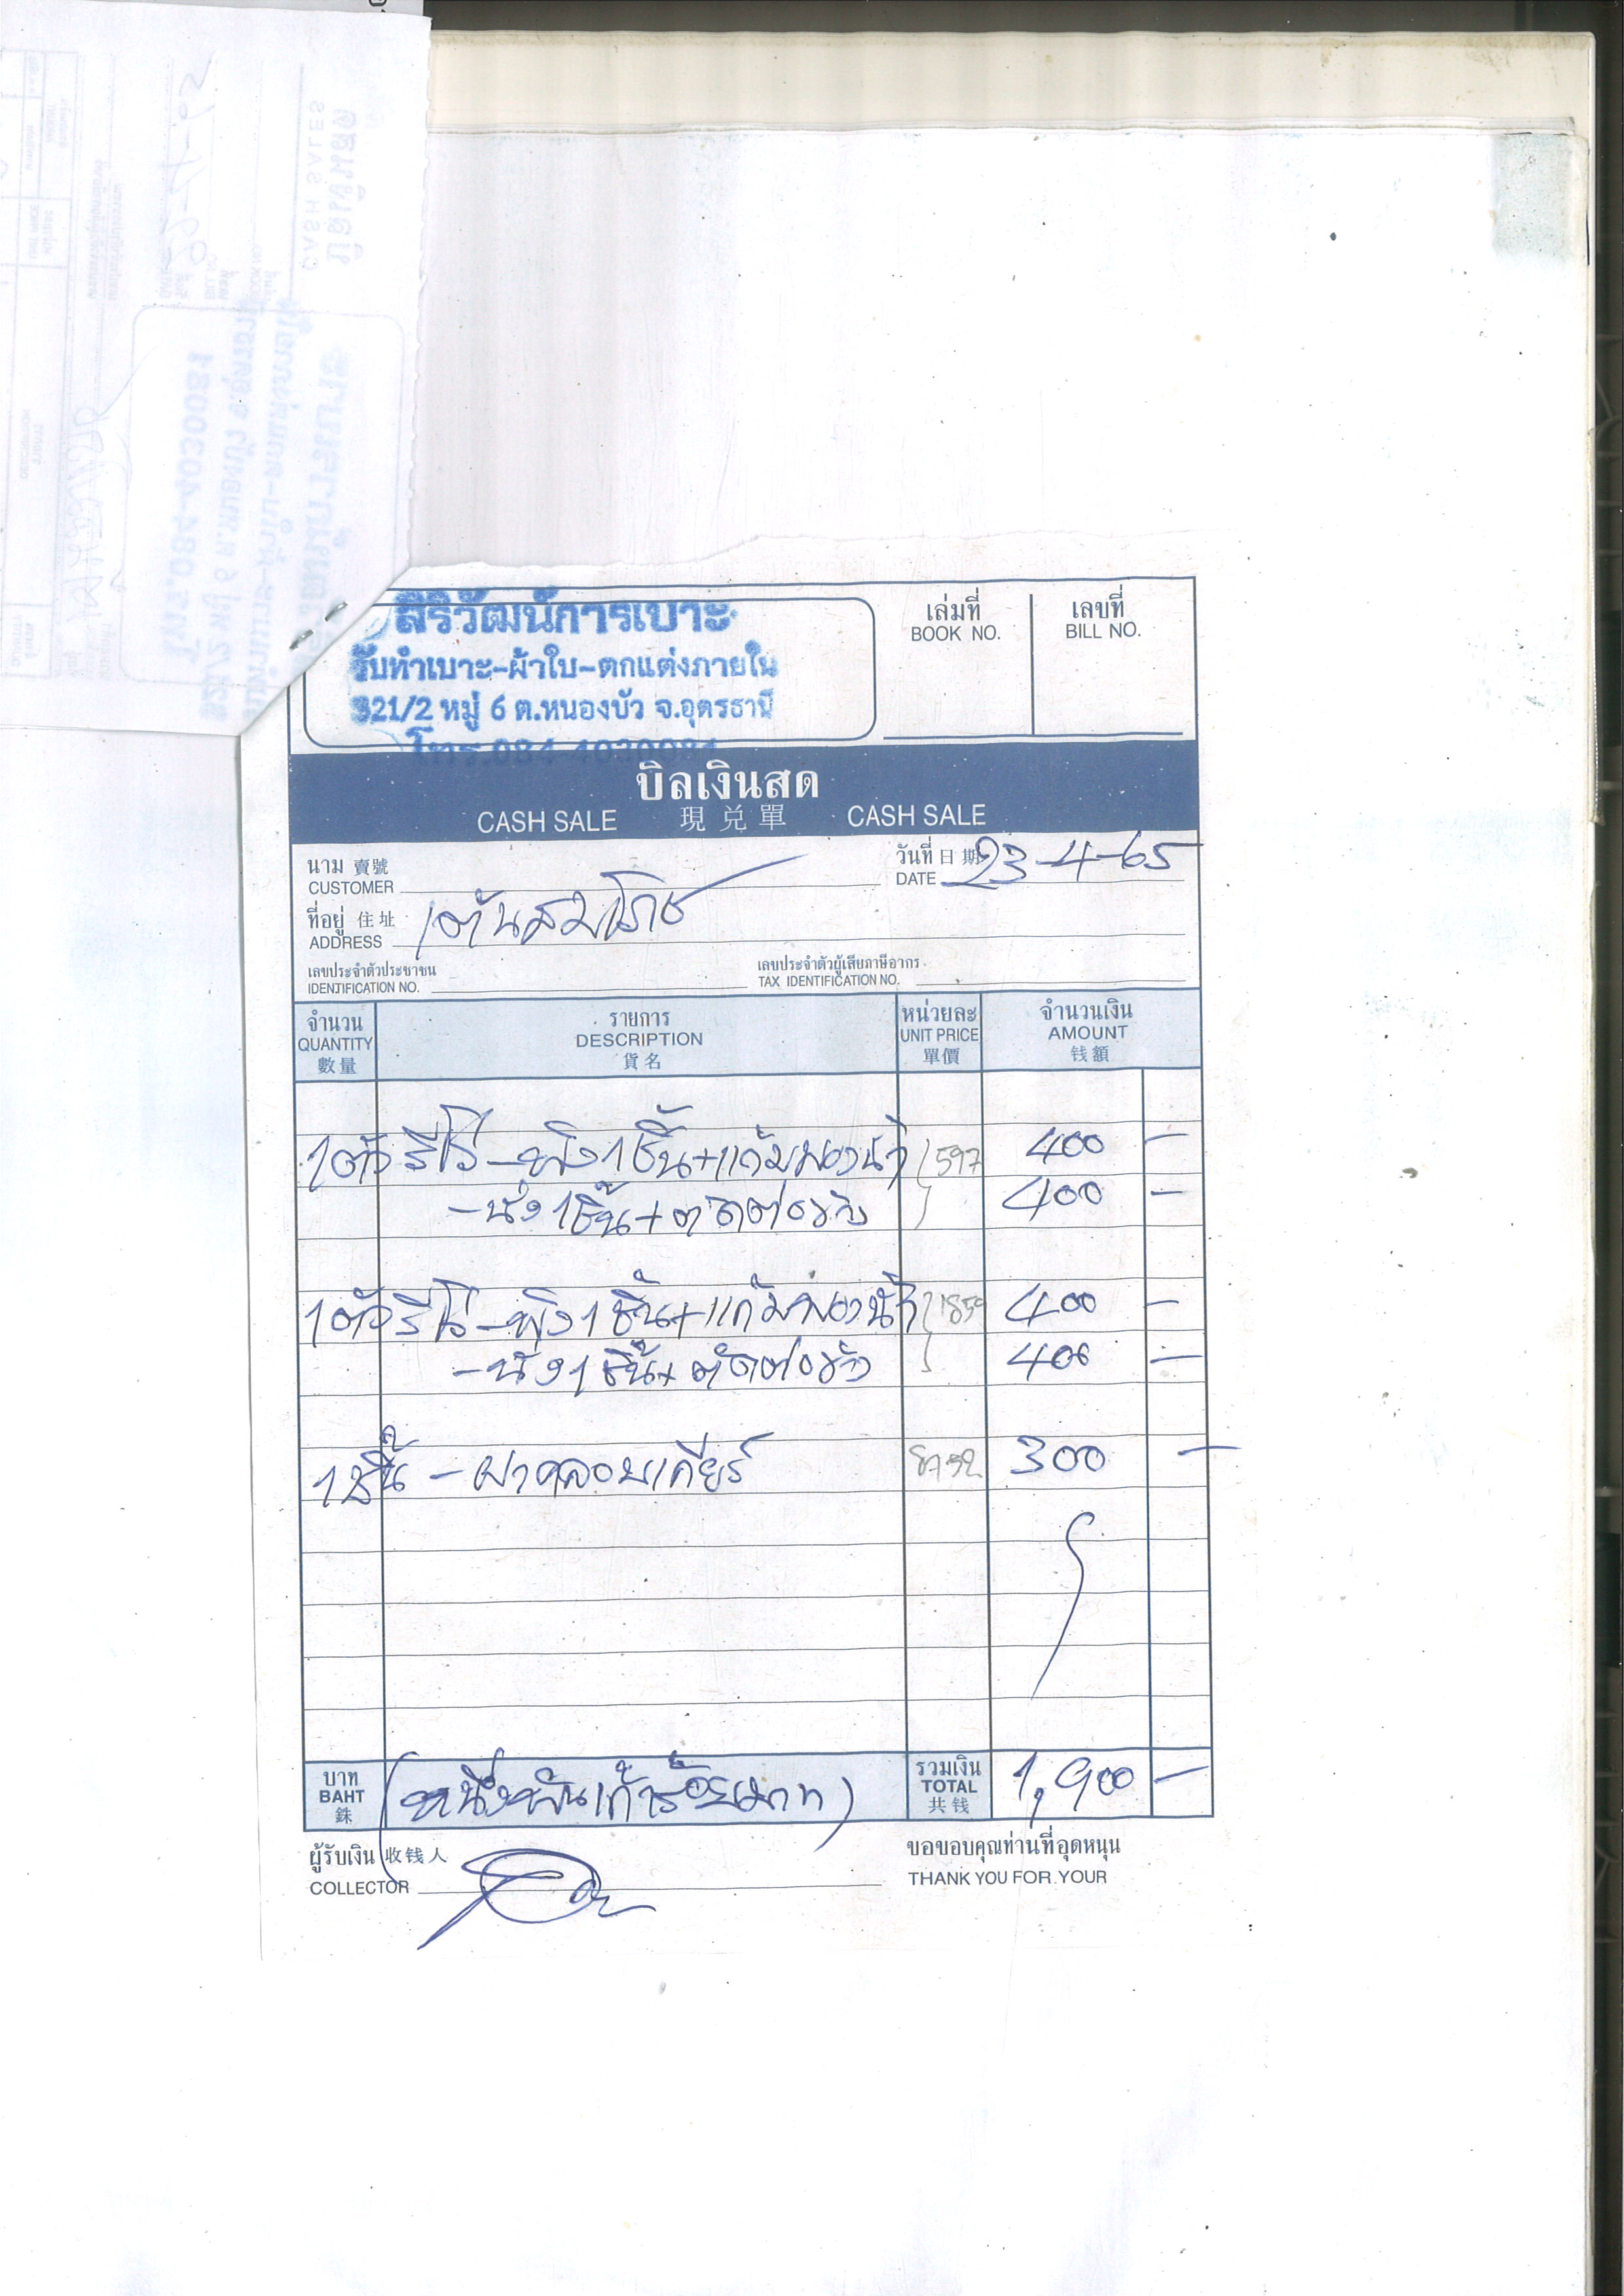 สิริวัฒน์การเบาะ
รับทำเบาะ-ผ้าใบ-ตกแต่งภายใน
321/2 หมู่ 6 ต.หนองบัว จ.อุดรธานี
โทร.084-4030081
เล่มที่
BOOK NO.
เลขที่
BILL NO.
บิลเงินสด
CASH SALE 現兑單 CASH SALE
นาม 賣號
CUSTOMER
วันที่ 日期 23-4-65
DATE
ที่อยู่ 住址 เต้นสมโภช
ADDRESS
เลขประจำตัวประชาชน
IDENTIFICATION NO.
เลขประจำตัวผู้เสียภาษีอากร
TAX IDENTIFICATION NO.
จำนวน รายการ หน่วยละ จำนวนเงิน
QUANTITY DESCRIPTION UNIT PRICE AMOUNT
數量 貨名 單價 钱額
1ตัว รีโร่ -พิง 1ชิ้น+แก้มฟองน้ำ 597 400 -
-นั่ง 1ชิ้น+ตัดต่อข้าง 400 -
1ตัว รีโร่ -พิง 1ชิ้น+แก้มฟองน้ำ 1859 400 -
-นั่ง 1ชิ้น+ตัดต่อข้าง 400 -
1ชิ้น - ฝาครอบเกียร์ 300 -
บาท
BAHT
銖
(หนึ่งพันเก้าร้อยบาท)
รวมเงิน
TOTAL
共钱
1,900 -
ผู้รับเงิน 收钱人
COLLECTOR
ขอขอบคุณท่านที่อุดหนุน
THANK YOU FOR YOUR